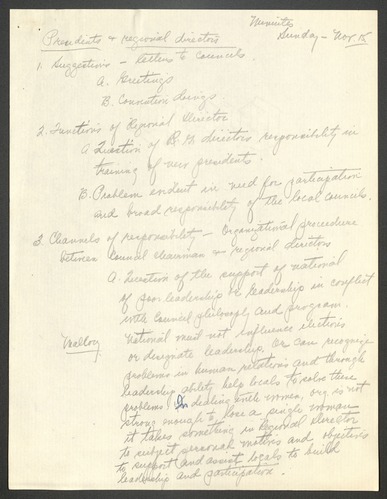 Minutes
Sunday - Nov. 15
Presidents & regional directors
1. Suggestions - letters to Councils.
A. Greetings
B. Convention doings.
2. Functions of Regional Director
A. Question of directors responsibility in
training of new presidents.
B. Problem in need for participation
and broad responsibility of the local councils.
3. Channels of responsibility - Organizational procedure
between Council chairman & regional directors
A. Question of the support of national
of poor leadership or leadership in conflict
with Council philosophy and program.
National must not influence elections
or designate leadership, Or can recognize
problems in human relations and through
leadership ability help locals to solve these
problems. In dealing with women, org. is not
strong enough to lose a single woman
it takes something in Regional Director
to subject personal matters and objectives
to support and assist locals to build
leadership and participation.